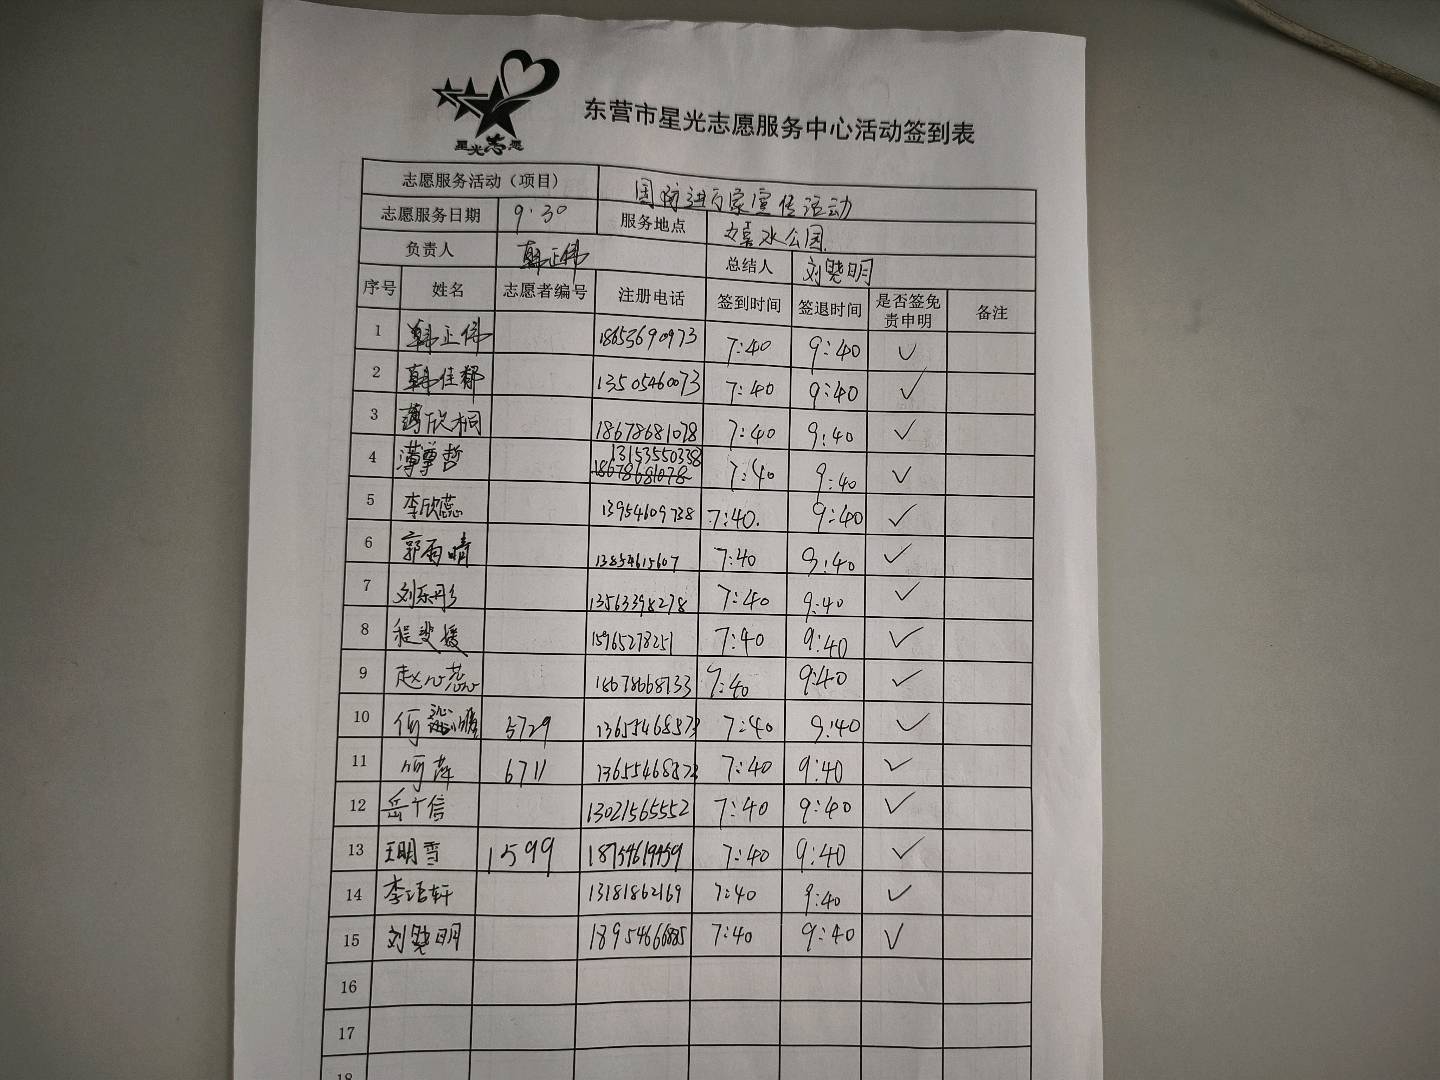 星光志愿
东营市星光志愿服务中心活动签到表
志愿服务活动（项目） 国防进万家宣传活动
志愿服务日期 9.30 服务地点 水公园
负责人 韩正伟 总结人 刘晓明
序号 姓名 志愿者编号 注册电话 签到时间 签退时间 是否签免责申明 备注
1 韩正伟 18653690973 7:40 9:40 ✓
2 韩佳郡 13505460073 7:40 9:40 ✓
3 薄欣桐 18678681078 7:40 9:40 ✓
4 薄尊哲 13153550338 18678681078 7:40 9:40 ✓
5 李欣蕊 13954609738 7:40. 9:40 ✓
6 郭雨晴 13854615607 7:40 9:40 ✓
7 刘东彤 13563398278 7:40 9:40 ✓
8 程斐媛 15965278251 7:40 9:40 ✓
9 赵心蕊 18678668733 7:40 9:40 ✓
10 何 5729 13655468873 7:40 9:40 ✓
11 何萍 6711 13655468873 7:40 9:40 ✓
12 岳千信 13021565552 7:40 9:40 ✓
13 王明雪 1599 18754619459 7:40 9:40 ✓
14 李浩轩 13181862169 7:40 9:40 ✓
15 刘晓明 18954666885 7:40 9:40 ✓
16
17
18